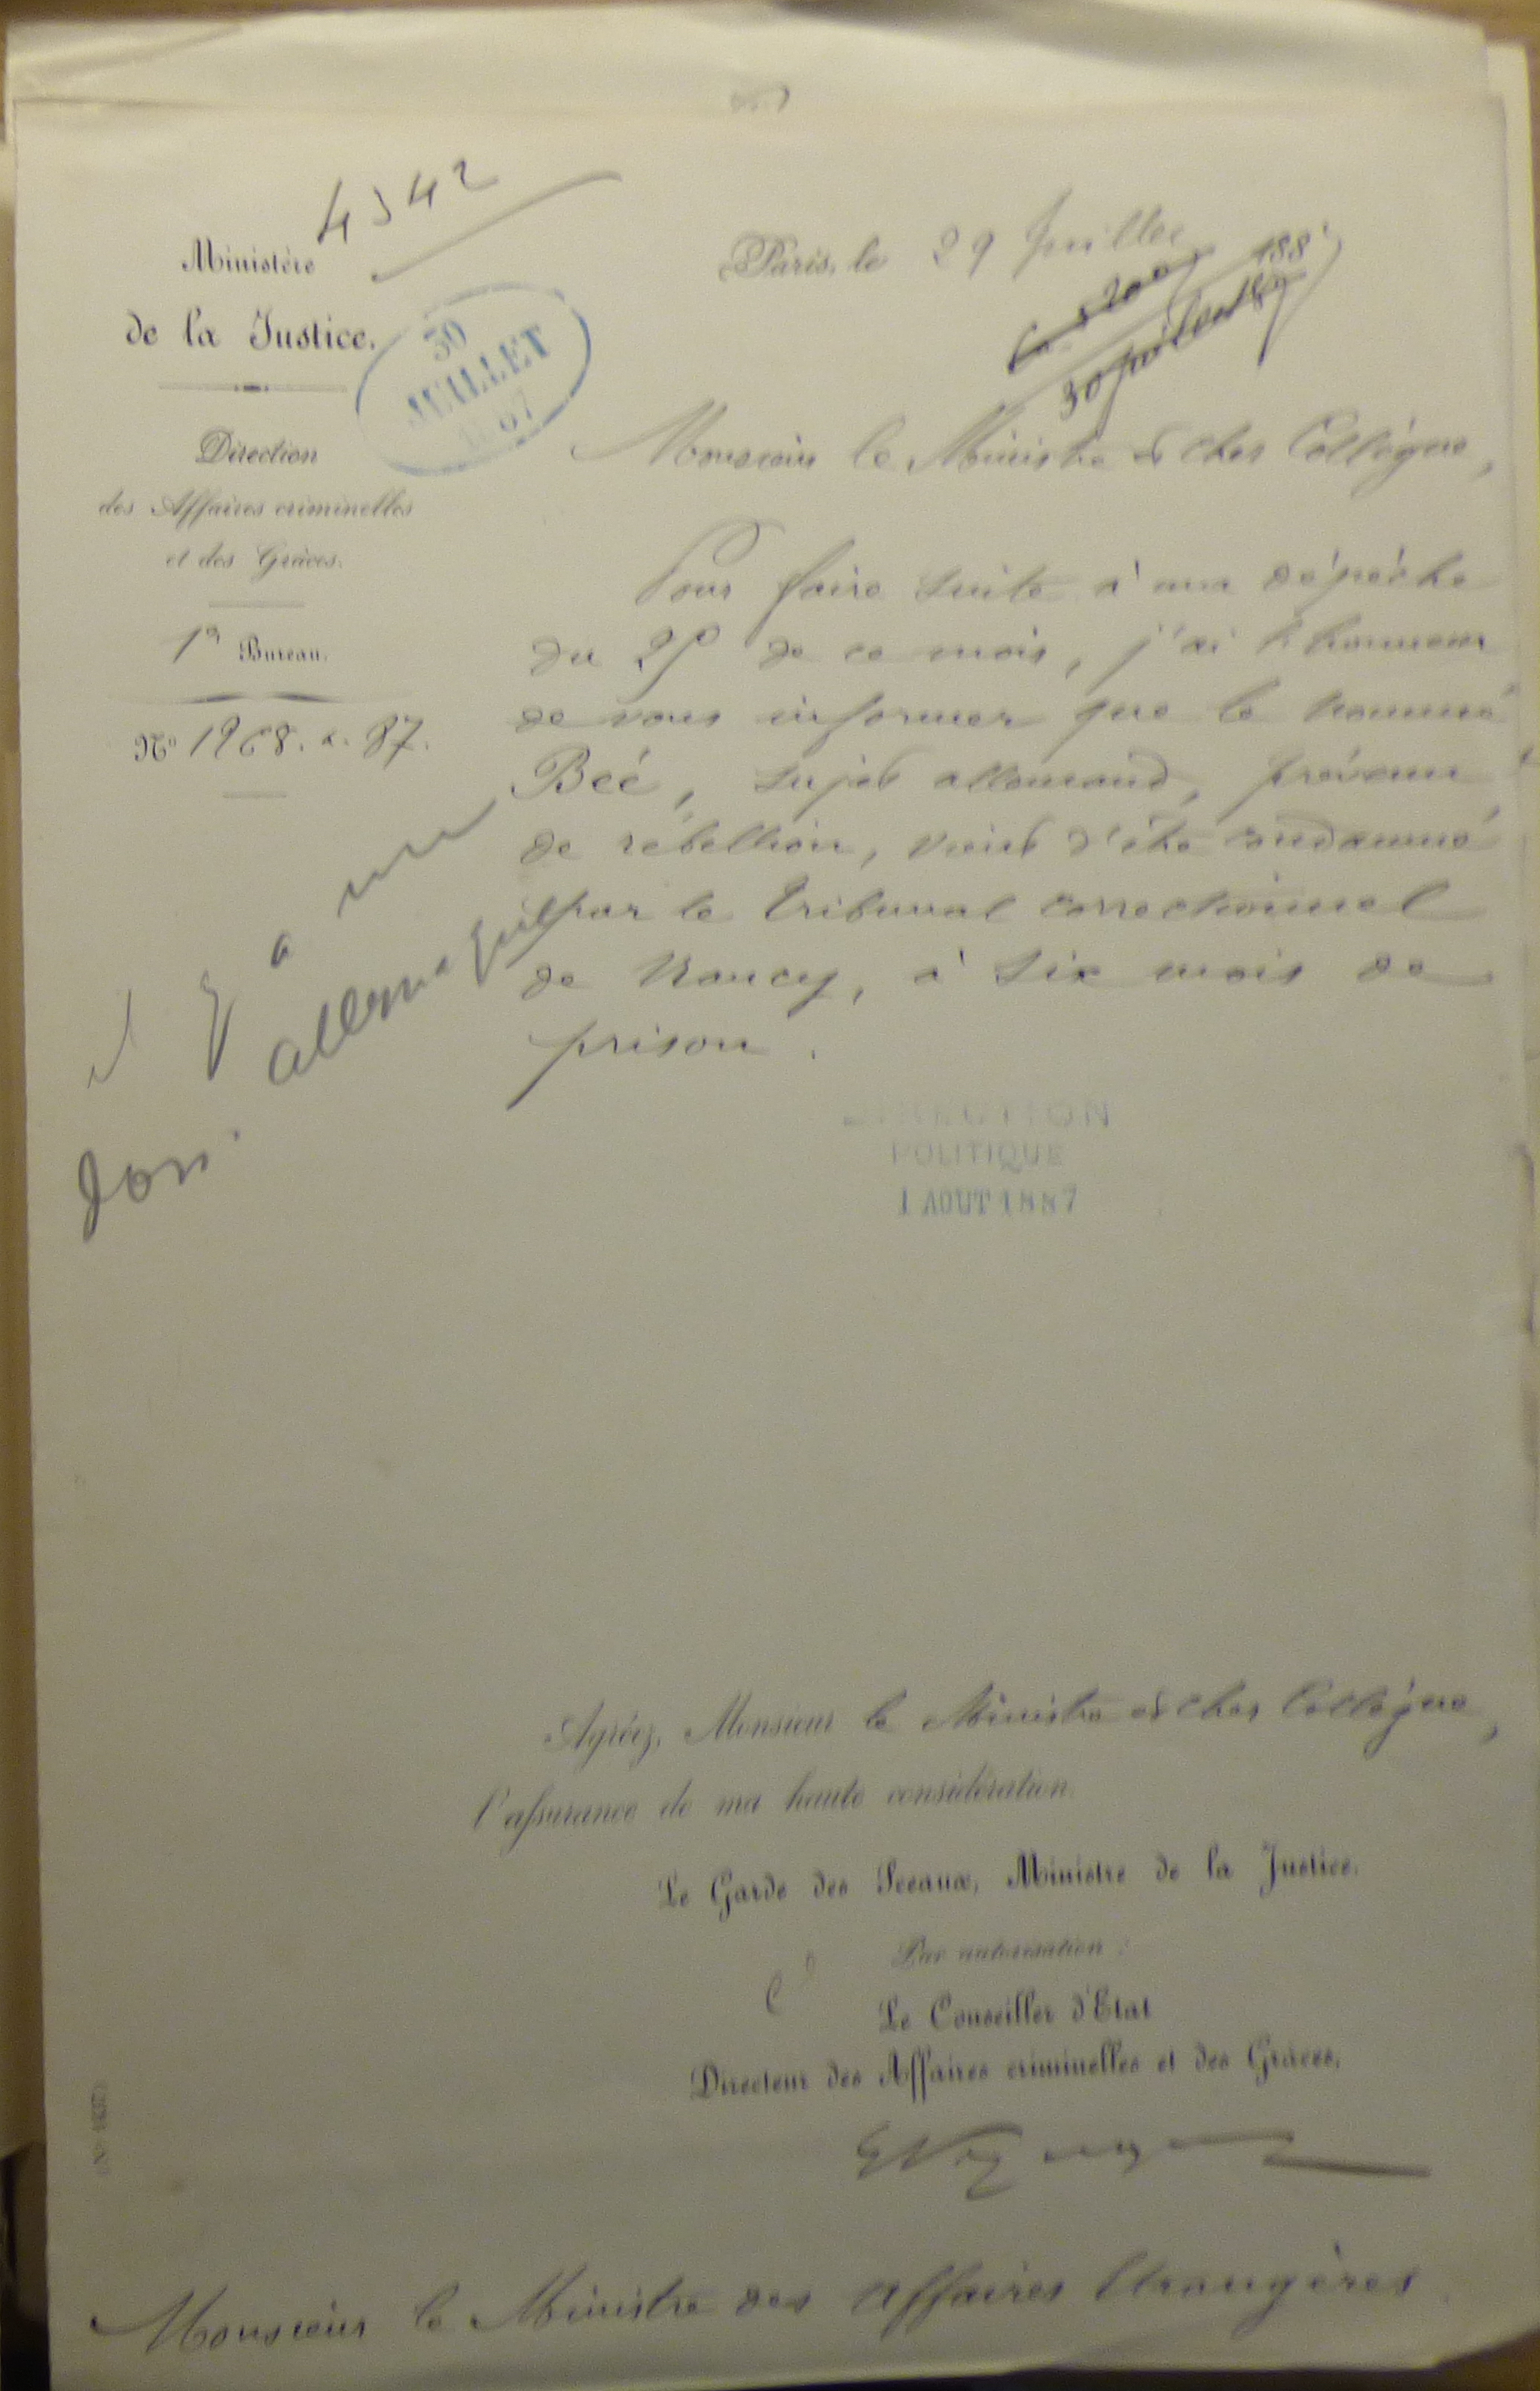 4342
Ministère
de la Justice.
Direction
des Affaires criminelles
et des Grâces.
1er Bureau.
No 1968. A. 87.
30
JUILLET
87
Paris, le 29 Juillet 1887
30 juillet 87
Monsieur le Ministre et cher Collègue,
Pour faire suite à ma dépêche
du 28 de ce mois, j'ai l'honneur
de vous informer que le nommé
Beé, sujet allemand, prévenu
de rébellion, vient d'être condamné
par le Tribunal correctionnel
de Nancy, à six mois de
prison.
il y a un
DIRECTION
POLITIQUE
1 AOUT 1887
Agréez, Monsieur le Ministre et cher Collègue,
l'assurance de ma haute considération.
Le Garde des Sceaux, Ministre de la Justice.
Par autorisation :
Le Conseiller d'Etat
Directeur des Affaires criminelles et des Grâces,
Monsieur le Ministre des Affaires Etrangères.